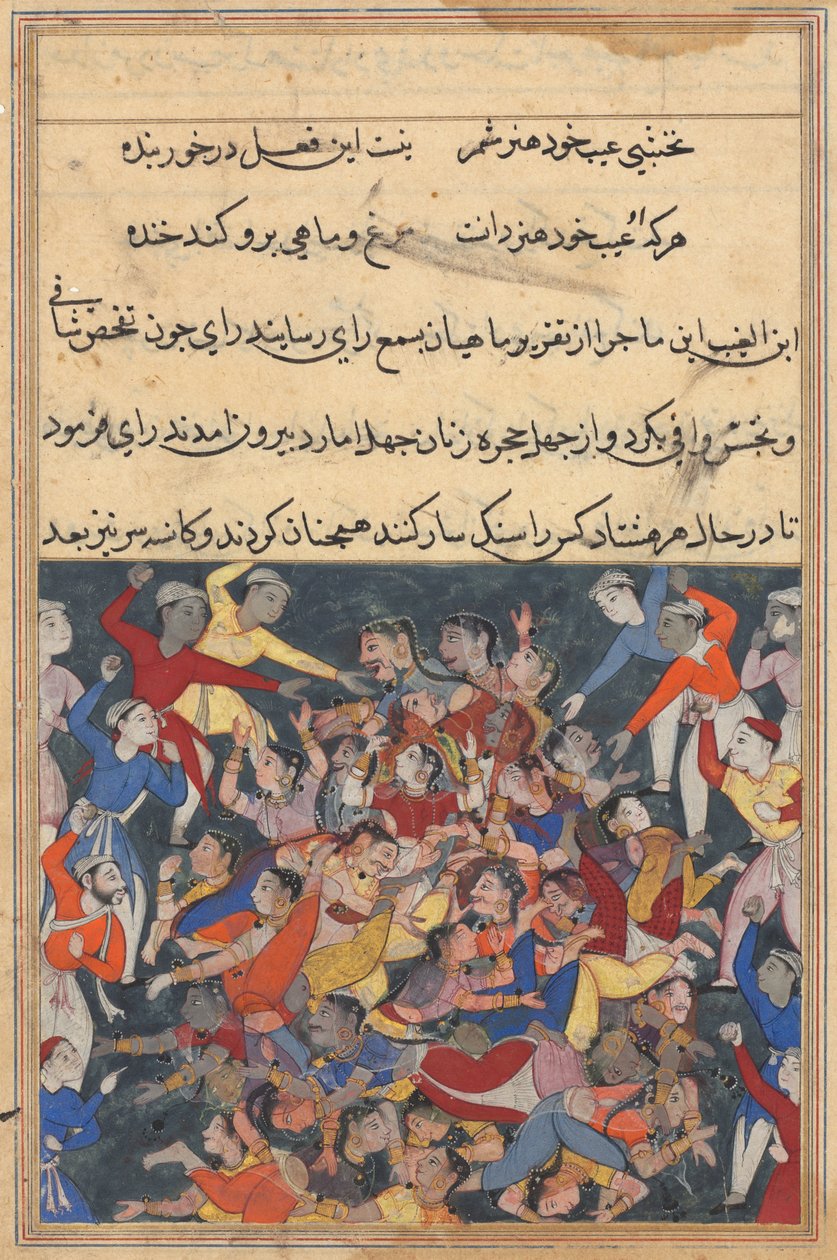 نخشبی عیب خود هنر شمر نیست این فعل در خور بنده
هر که او عیب خود هنر دانست مرغ و ماهی برو کند خنده
ابن الغیب این ماجرا از تقریر ماهیان بسمع رای رسانید رای چون تفحص شافی
و تجسس وافی بکرد و از چهل حجره زنان چهل امارد بیرون امدند رای فرمود
تا در حال هر هشتاد کس را سنک سار کنند همچنان کردند و کاسه سر نیز بعد